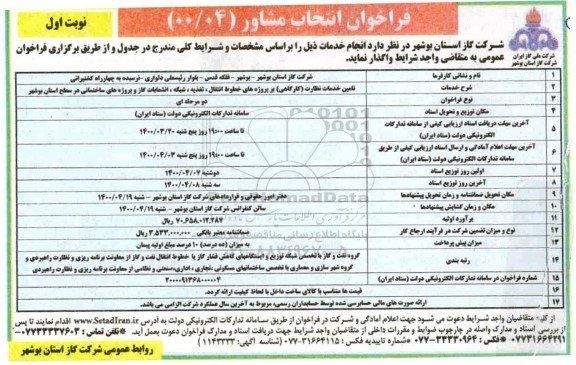 نوبت اول
فراخوان انتخاب مشاور (۰۰/۰۴)
شرکت ملی گاز ایران
شرکت گاز استان بوشهر
شرکت گاز استان بوشهر در نظر دارد انجام خدمات ذیل را براساس مشخصات و شرایط کلی مندرج در جدول و از طریق برگزاری فراخوان
عمومی به متقاضی واجد شرایط واگذار نماید.
۱ نام و نشانی کارفرما شرکت گاز استان بوشهر - بوشهر - فلکه قدس - بلوار رئیسعلی دلواری - نرسیده به چهارراه کشتیرانی
۲ شرح خدمات تامین خدمات نظارت (کارگاهی) بر پروژه های خطوط انتقال، تغذیه، شبکه، انشعابات گاز و پروژه های ساختمانی در سطح استان بوشهر
۳ نوع فراخوان دو مرحله ای
۴ مکان توزیع و تحویل اسناد سامانه تدارکات الکترونیکی دولت (ستاد ایران)
۵ آخرین مهلت دریافت اسناد ارزیابی کیفی از سامانه تدارکات الکترونیکی دولت (ستاد ایران) تا ساعت ۱۹:۰۰ روز پنج شنبه ۱۴۰۰/۰۳/۲۰
۶ آخرین مهلت اعلام آمادگی و ارسال اسناد ارزیابی کیفی از طریق سامانه تدارکات الکترونیکی دولت (ستاد ایران) تا ساعت ۱۹:۰۰ روز پنج شنبه ۱۴۰۰/۰۴/۰۳
۷ اولین روز توزیع اسناد دوشنبه ۱۴۰۰/۰۴/۰۷
۸ آخرین روز توزیع اسناد سه شنبه ۱۴۰۰/۰۴/۰۸
۹ مکان تحویل ضمانتنامه و زمان تحویل پیشنهادها دفتر امور حقوقی و قراردادهای شرکت گاز استان بوشهر - شنبه ۱۴۰۰/۰۴/۱۹
۱۰ مکان و زمان گشایش پیشنهادها سالن کنفرانس شرکت گاز استان بوشهر - شنبه ۱۴۰۰/۰۴/۱۹
۱۱ برآورد اولیه ۷۰,۶۵۸,۰۱۲,۲۸۷ ریال
۱۲ نوع و میزان تضمین شرکت در فرآیند ارجاع کار ضمانتنامه معتبر بانکی ۳,۵۳۳,۰۰۰,۰۰۰ ریال
۱۳ میزان پیش پرداخت به میزان (ده درصد) ۱۰ درصد مبلغ اولیه پیمان
۱۴ رتبه بندی گروه نفت و گاز با تخصص شبکه توزیع و ایستگاههای کاهش فشار گاز یا خطوط انتقال نفت و گاز از معاونت برنامه ریزی و نظارت راهبردی و
گروه شهر سازی و معماری با تخصص ساختمانهای مسکونی، تجاری، اداری، صنعتی و نظامی از معاونت برنامه ریزی و نظارت راهبردی
۱۵ شماره فراخوان در سامانه تدارکات الکترونیکی دولت (ستاد ایران) ۲۰۰۰۰۹۱۳۶۸۰۰۰۰۰۴
۱۶ قیمت ها متناسب با کالای ساخت داخل با لحاظ کیفیت ارائه گردد.
۱۷ ارائه صورت های مالی حسابرسی شده توسط حسابداران رسمی، مربوط به آخرین سال عملکرد شرکت الزامی می باشد.
از کلیه متقاضیان واجد شرایط دعوت می شود جهت اعلام آمادگی و شرکت در فراخوان از طریق سامانه تدارکات الکترونیکی دولت به آدرس www.SetadIran.ir اقدام نمایند تا پس
از بررسی اسناد و مدارک واصله در چارچوب ضوابط و مقررات داخلی از متقاضیان واجد شرایط جهت دریافت اسناد و مدارک فراخوان دعوت بعمل آید. تلفن تماس: ۰۷۷۳۳۳۳۷۶۰۳-
۰۷۷۳۱۶۶۴۲۹۱ فکس: ۳۳۳۳۰۹۶۴-۰۷۷ شماره تاییدیه فکس: ۳۱۶۶۴۱۱۵-۰۷۷ (شناسه آگهی: ۱۱۴۳۳۳۳)
روابط عمومی شرکت گاز استان بوشهر